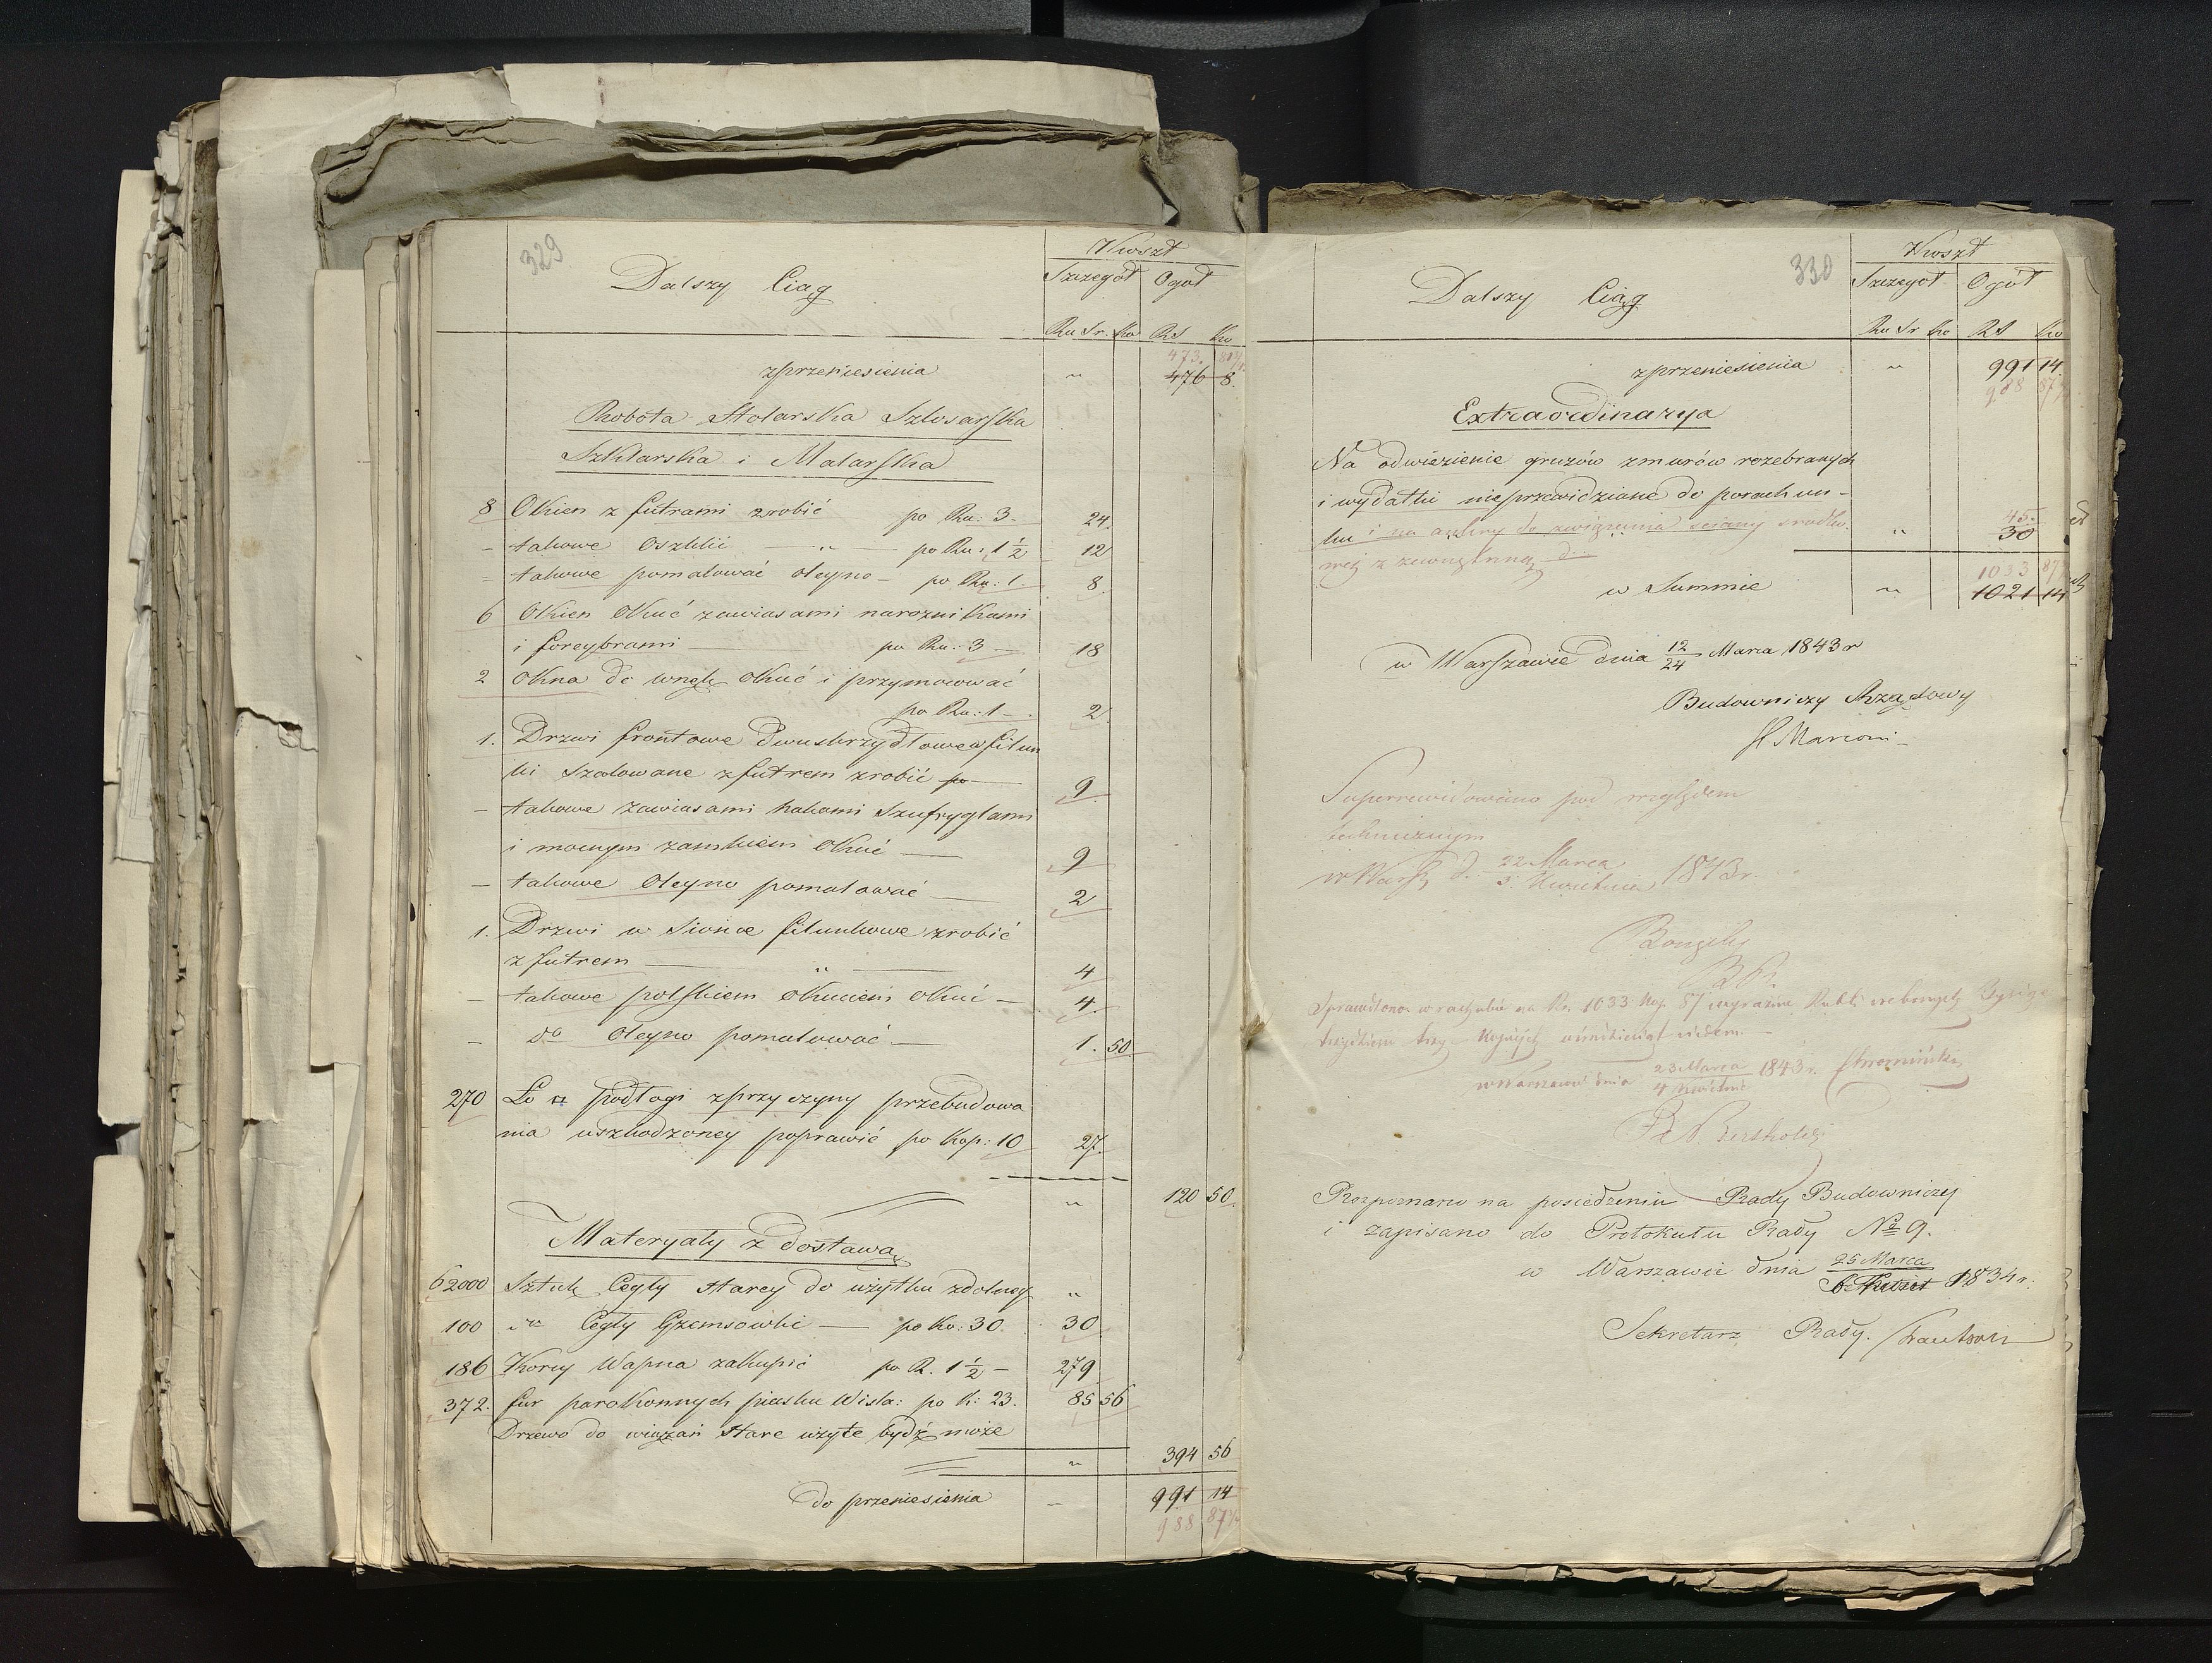 329
Dalszy Ciag
Koszt
Szczegół Ogół
Ru Sr. Ko RS Ko
473. 81½
zprzeniesienia " 476 8.
Robota Stolarska Szlosarska
Szklarska i Malarska
8 Okien z futrami zrobić po Ru: 3 – 24.
– takowe Oszklić — " — po Ru: 1 ½ 12
– takowe pomalować oleyno – po Ru: 1 – 8.
6 Okien Okuć zawiasami naroznikami
i foreybrami — po Ru: 3 — 18
2 Okna do wnęk Okuć i przymocować
po Ru: 1 – 2
1. Drzwi frontowe dwuskrzydłowe w filun
ki szalowane z futrem zrobić po — 9
– takowe zawiasami hakami Szufryglami
i mocnym zamkiem Okuć — 9
– takowe Oleyno pomalować — 2
1. Drzwi w Sionce filunkowe zrobić
z futrem — " — 4
– takowe polskiem Okuciem Okuć – 4.
– do Oleyno pomalować — 1. 50
270 Ło □ podłogi zprzyczyny przebudowa
nia uszkodzoney poprawić po Kop: 10 27.
" 120 50.
Materyały z dostawą
62000 Sztuk Cegły Starey do użytku zdolney "
100 do Cegły Gzemsowki — po Ko: 30. 30.
186 Korcy Wapna zakupić po R. 1 ½ – 279
372. fur parokonnych piasku Wisla: po k: 23. 85 56
Drzewo do wiązań Stare użyte bydź może
" 394 56
do przeniesienia – 991 14
988 87½
330
Dalszy Ciąg
Koszt
Szczegół Ogół
Ru Sr Ko RS Ko
zprzeniesienia " 991 14.
988 87½
Extraordinarya
Na odwiezienie gruzów zmurów rozebranych
i wydatki nieprzewidziane do porachun-
ku i na ankry do związania sciany srodko. 45.
" 30
wej z zewnętrzną
1033 87½
w Summie " 1021 14
w Warszawie dnia 12/24 Marca 1843 r
Budowniczy Rządowy
H Marconi
Superrewidowano pod względem
technicznym
w Warsz d. 22 Marca/3 Kwietnia 1843 r.
Sprawdzono w rachubie na Rs. 1033 kop. 87 wyraźnie Rubli srebrnych Tysiąc
trzydzieści trzy kopiejek ośmdziesiąt siedem. –
w Warszawie dnia 23 Marca/4 Kwietnia 1843 r.
Rozpoznano na posiedzeniu Rady Budowniczej
i zapisano do Protokułu Rady № 9.
w Warszawie dnia 25 Marca/6 1834 r.
Sekretarz Rady.